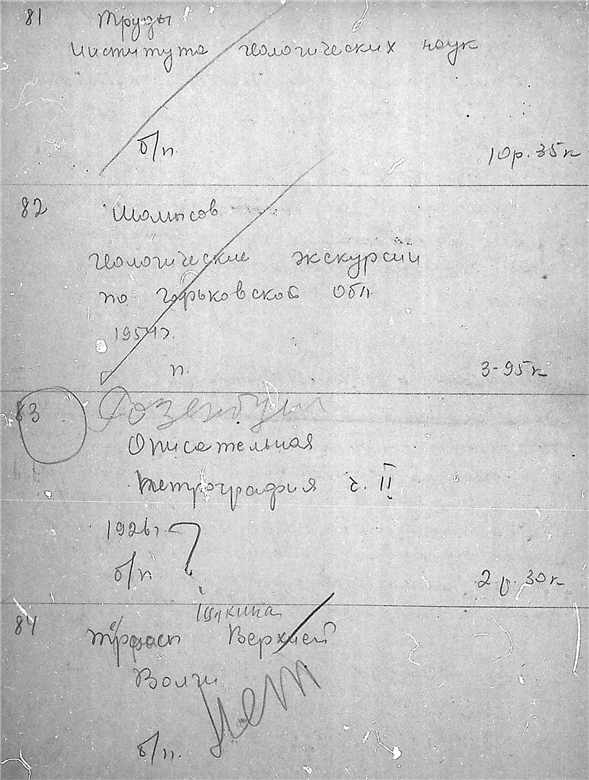 81 Труды
Института геологических наук
б/п. 10р. 35к
82 Шомысов
геологические экскурсии
по горьковской обл.
1954г.
п. 3-95к
83
Описательная
петрография ч. II
1926г. ?
б/п 2р. 30к
84
Верхней
Волги
нет
б/п.